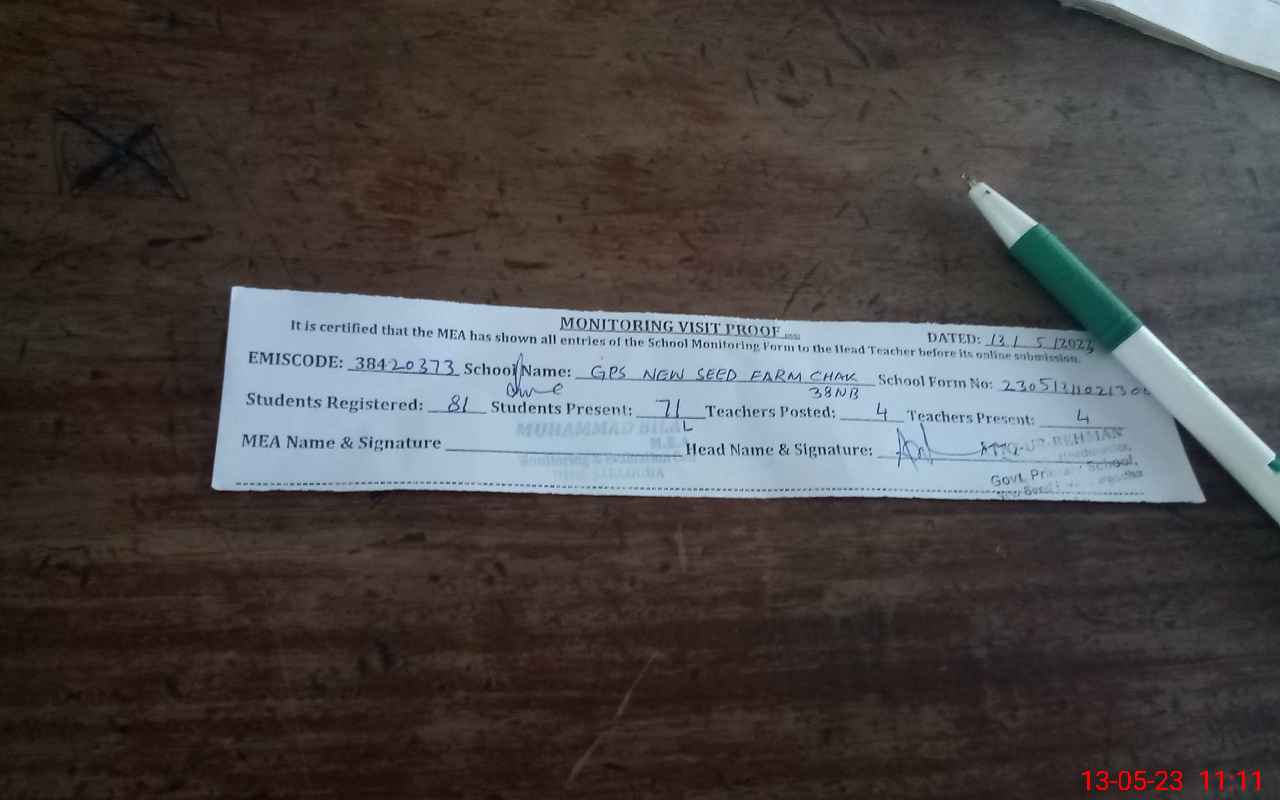 MONITORING VISIT PROOF
DATED: 13 / 5 /2023
It is certified that the MEA has shown all entries of the School Monitoring Form to the Head Teacher before its online submission.
EMISCODE: 38420373 School Name: GPS NEW SEED FARM CHAK 38NB School Form No:
Students Registered: 81 Students Present: 71 Teachers Posted: 4 Teachers Present: 4
MUHAMMAD BILAL
MEA Name & Signature Head Name & Signature:
-UR-REHMAN
Govt. School,
13-05-23 11:11